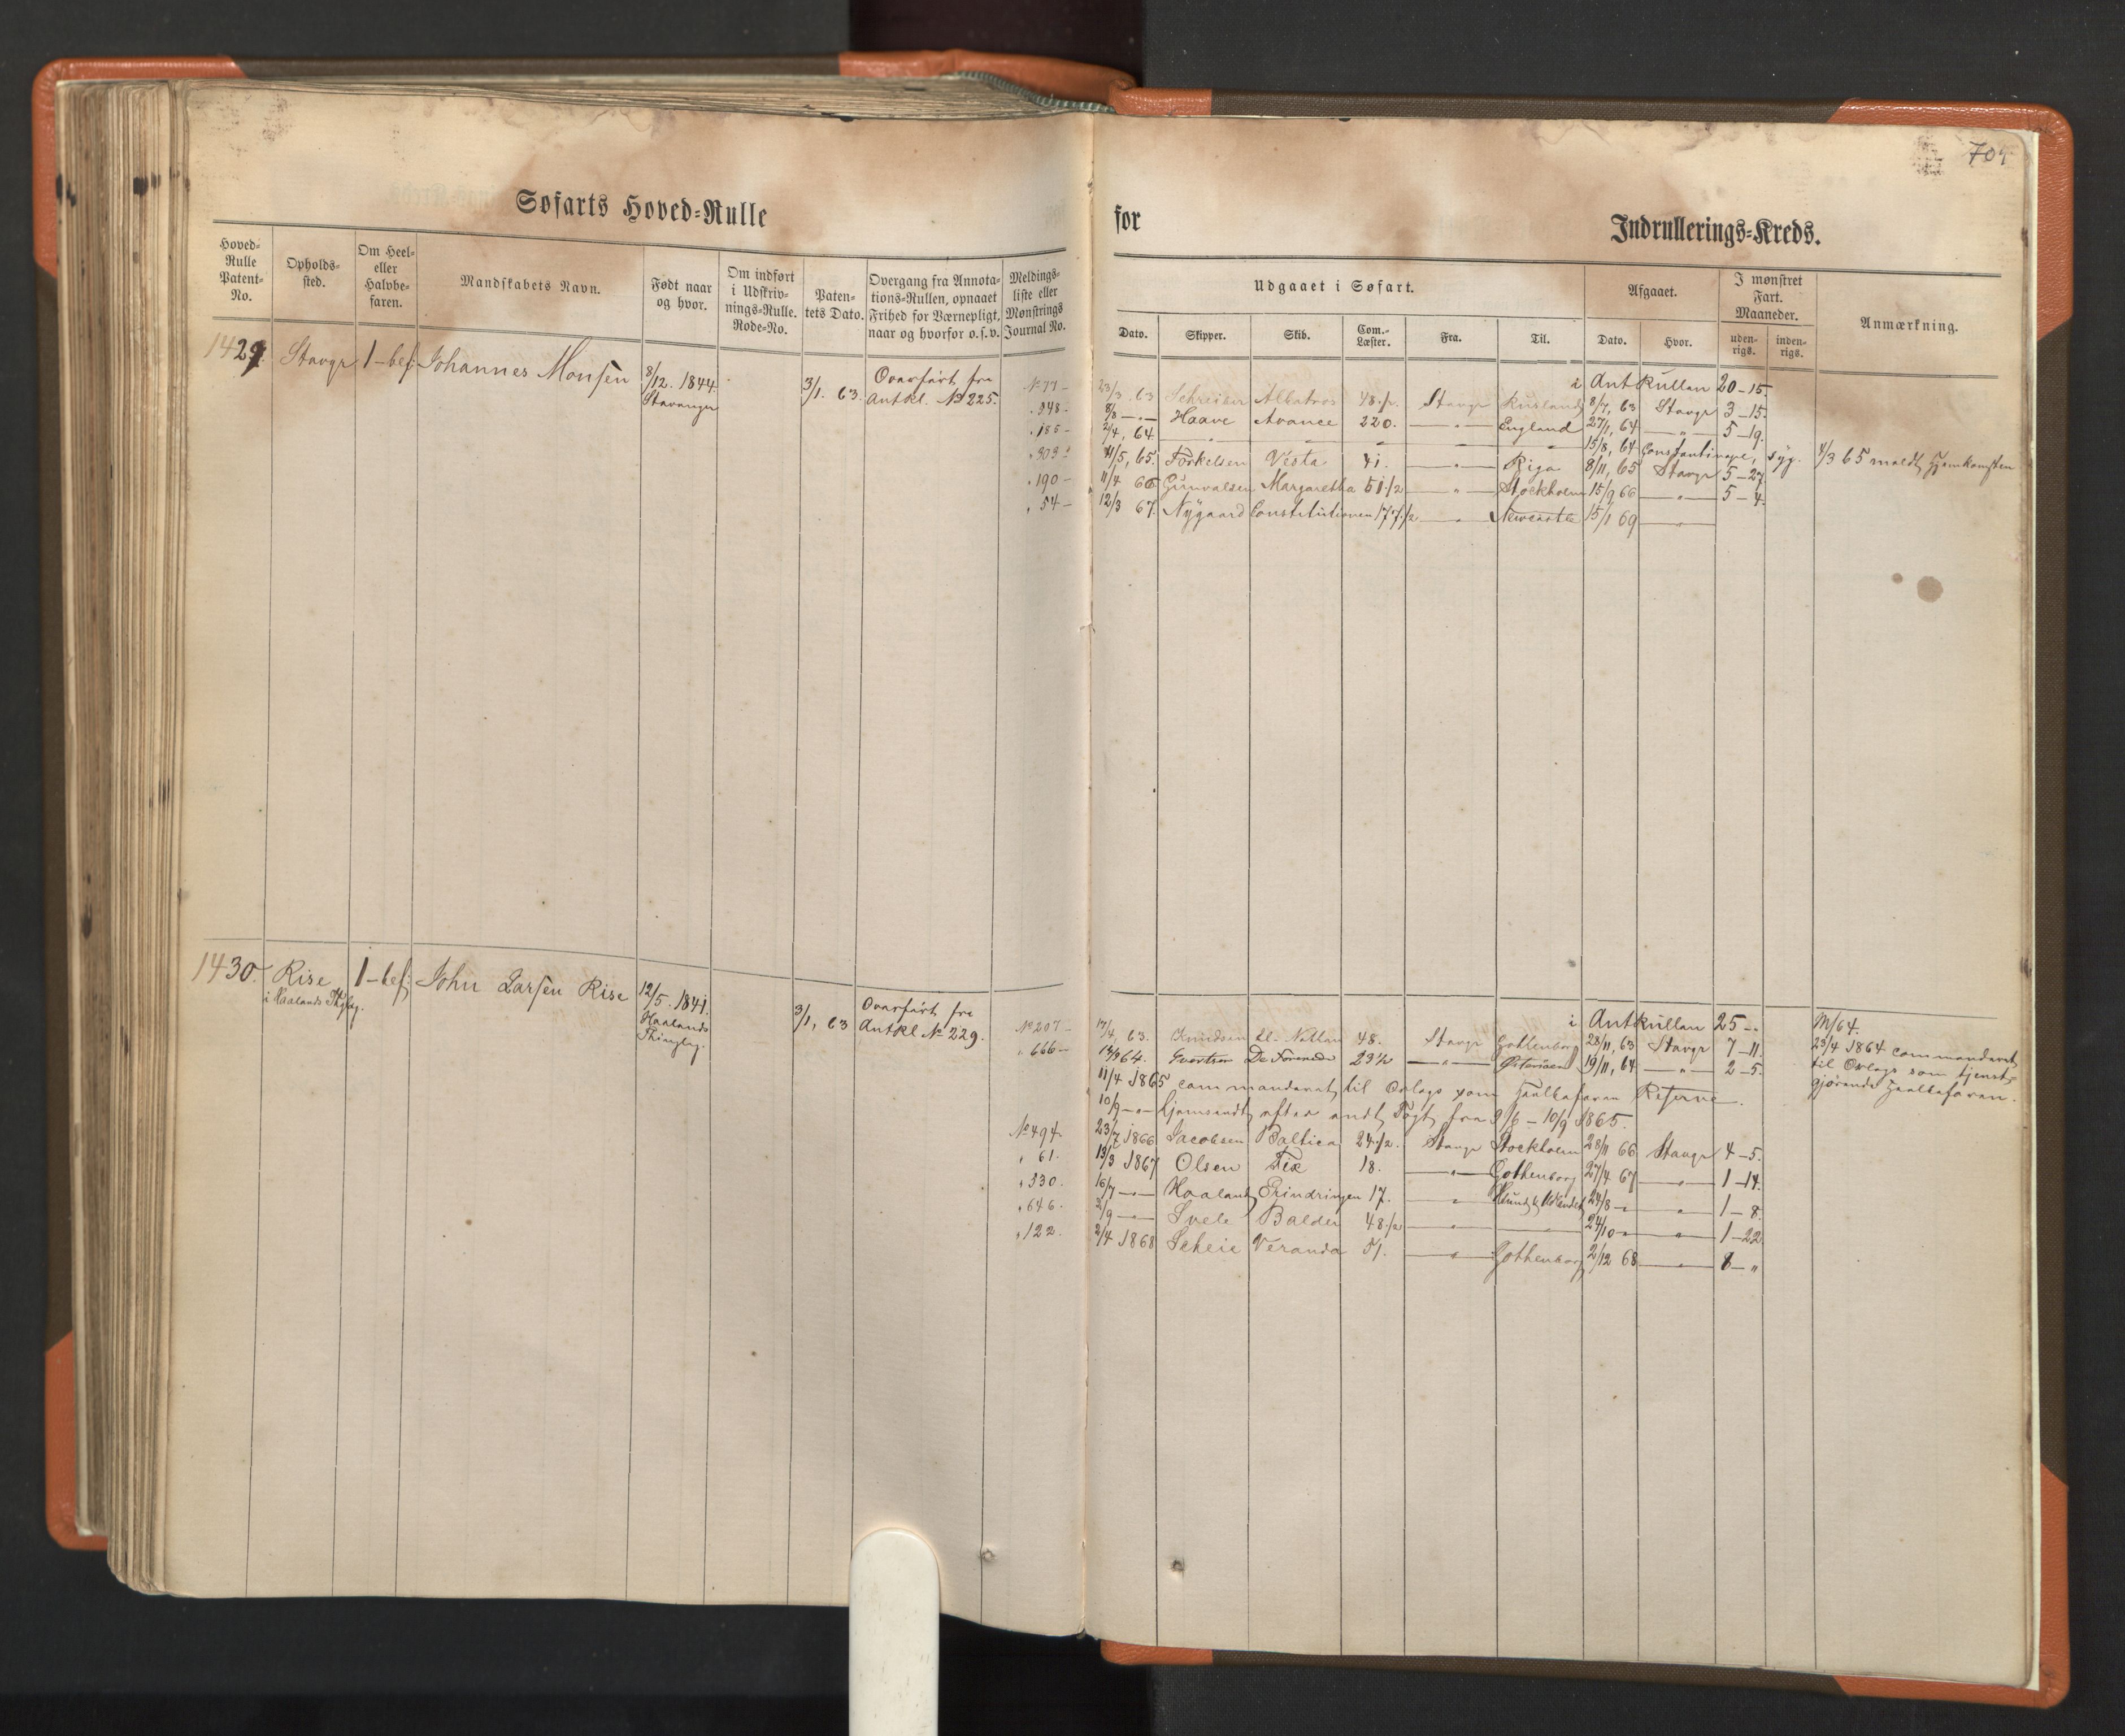 704
Søfarts Hoved-Rulle for Indrullerings-Kreds.
Hoved-Rulle Patent-No. Opholds-sted. Om Heel- eller Halvbe-faren. Mandskabets Navn. Født naar og hvor. Om indført i Udskriv-nings-Rulle. Rode-No. Paten-tets Dato. Overgang fra Annota-tions-Rullen, opnaaet Frihed for Værnepligt, naar og hvorfor o. s. v. Meldings-liste eller Mønstrings Journal No.
Udgaaet i Søfart. Afgaaet. I mønstret Fart. Maaneder. Anmærkning.
Dato. Skipper. Skib. Com.-Læster. Fra. Til. Dato. Hvor. uden-rigs. inden-rigs.
1429. Stavgr 1-bef: Johannes Monsen 8/12. 1844. Stavanger 3/1. 63. Overført fra Antkl. No 225.
i Antkullen 20-15.
No 77- 23/3. 63 Schreiber Albatros 48.1/2 Stavgr Rusland 8/7, 63 Stavgr 3-15.
" 348- 8/8 -"- Haave Avance 220. -"- England 27/1, 64 -"- 5-19.
" 185- 2/4, 64 " " " " " 15/8, 64 Constantinopel, syg. 4/3 65 meldt Hjemkomsten
" 303- 11/5, 65. Torkelsen Vesta 41. " Riga 8/11, 65 Stavgr 5-27
" 190- 11/4 66 Gunvalsen Margaretha 51.1/2 -"- Stockholm 15/9 66 -"- 5-4.
" 54- 12/3 67. Nygaard Constitutionen 177.1/2 -"- Newcastle 15/1 69 -"-
1430. Rise i Haalands Thglg. 1-bef: John Larsen Rise 12/5. 1841. Haalands Thinglag. 3/1, 63 Overført fra Antkl No 229.
i Antkullen 25-.
No 207- 17/4, 63. Knudsen 48. Stavgr Gottenborg 28/11, 63 Stavgr 7-11.
" 666- 64. De Forenede 23 1/2 -"- 19/11, 64 -"- 2-5.
M/64.
23/4 1864 commanderet til Orlogs som tjenst-gjørende Halvbefaren.
11/4 1865 commanderet til Orlogs som Halvbefaren Reserve.
10/9 -"- hjemsendt efter endt Togt fra 9/6 - 10/9 1865.
No 494. 23/7 1866 Jacobsen Baltica 24.1/2. Stavgr Stockholm 28/11 66 Stavgr 4-5.
" 61. 13/3 1867 Olsen Fix 18. -"- Gothenborg 27/4 67 -"- 1-14.
" 330. 16/7 -"- Haaland Erindringen 17. " 24/8 -"- " 1-8.
" 646. 2/9 -"- Svele Balder 48.1/2 -"- -"- 24/10 -"- " 1-22.
" 122. 2/4 1868 Scheie Veranda 51. -"- Gothenborg 2/12 68 -"- 8-"